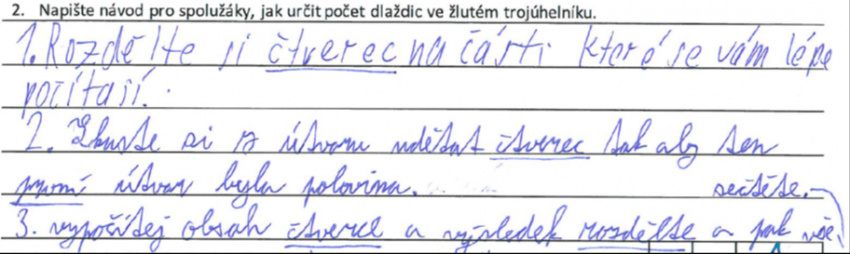 2. Napište návod pro spolužáky, jak určit počet dlaždic ve žlutém trojúhelníku.
1. Rozdělte si čtverec na části které se vám lépe
počítají.
2. Zkuste si z útvaru udělat čtverec tak aby ten
první útvar byla polovina. sečtěte.
3. vypočítej obsah čtverce a výsledek rozdělte a pak vše